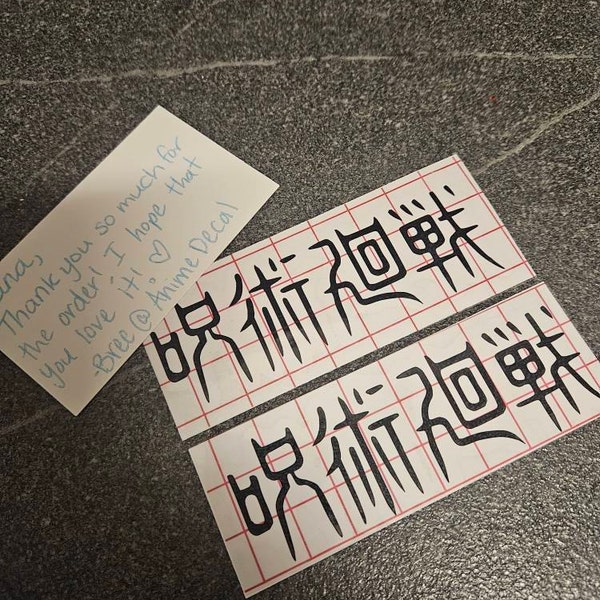 Thank you so much for
the order! I hope that
you love it! ♡
-Bree @ Anime Decal
呪術廻戦
呪術廻戦